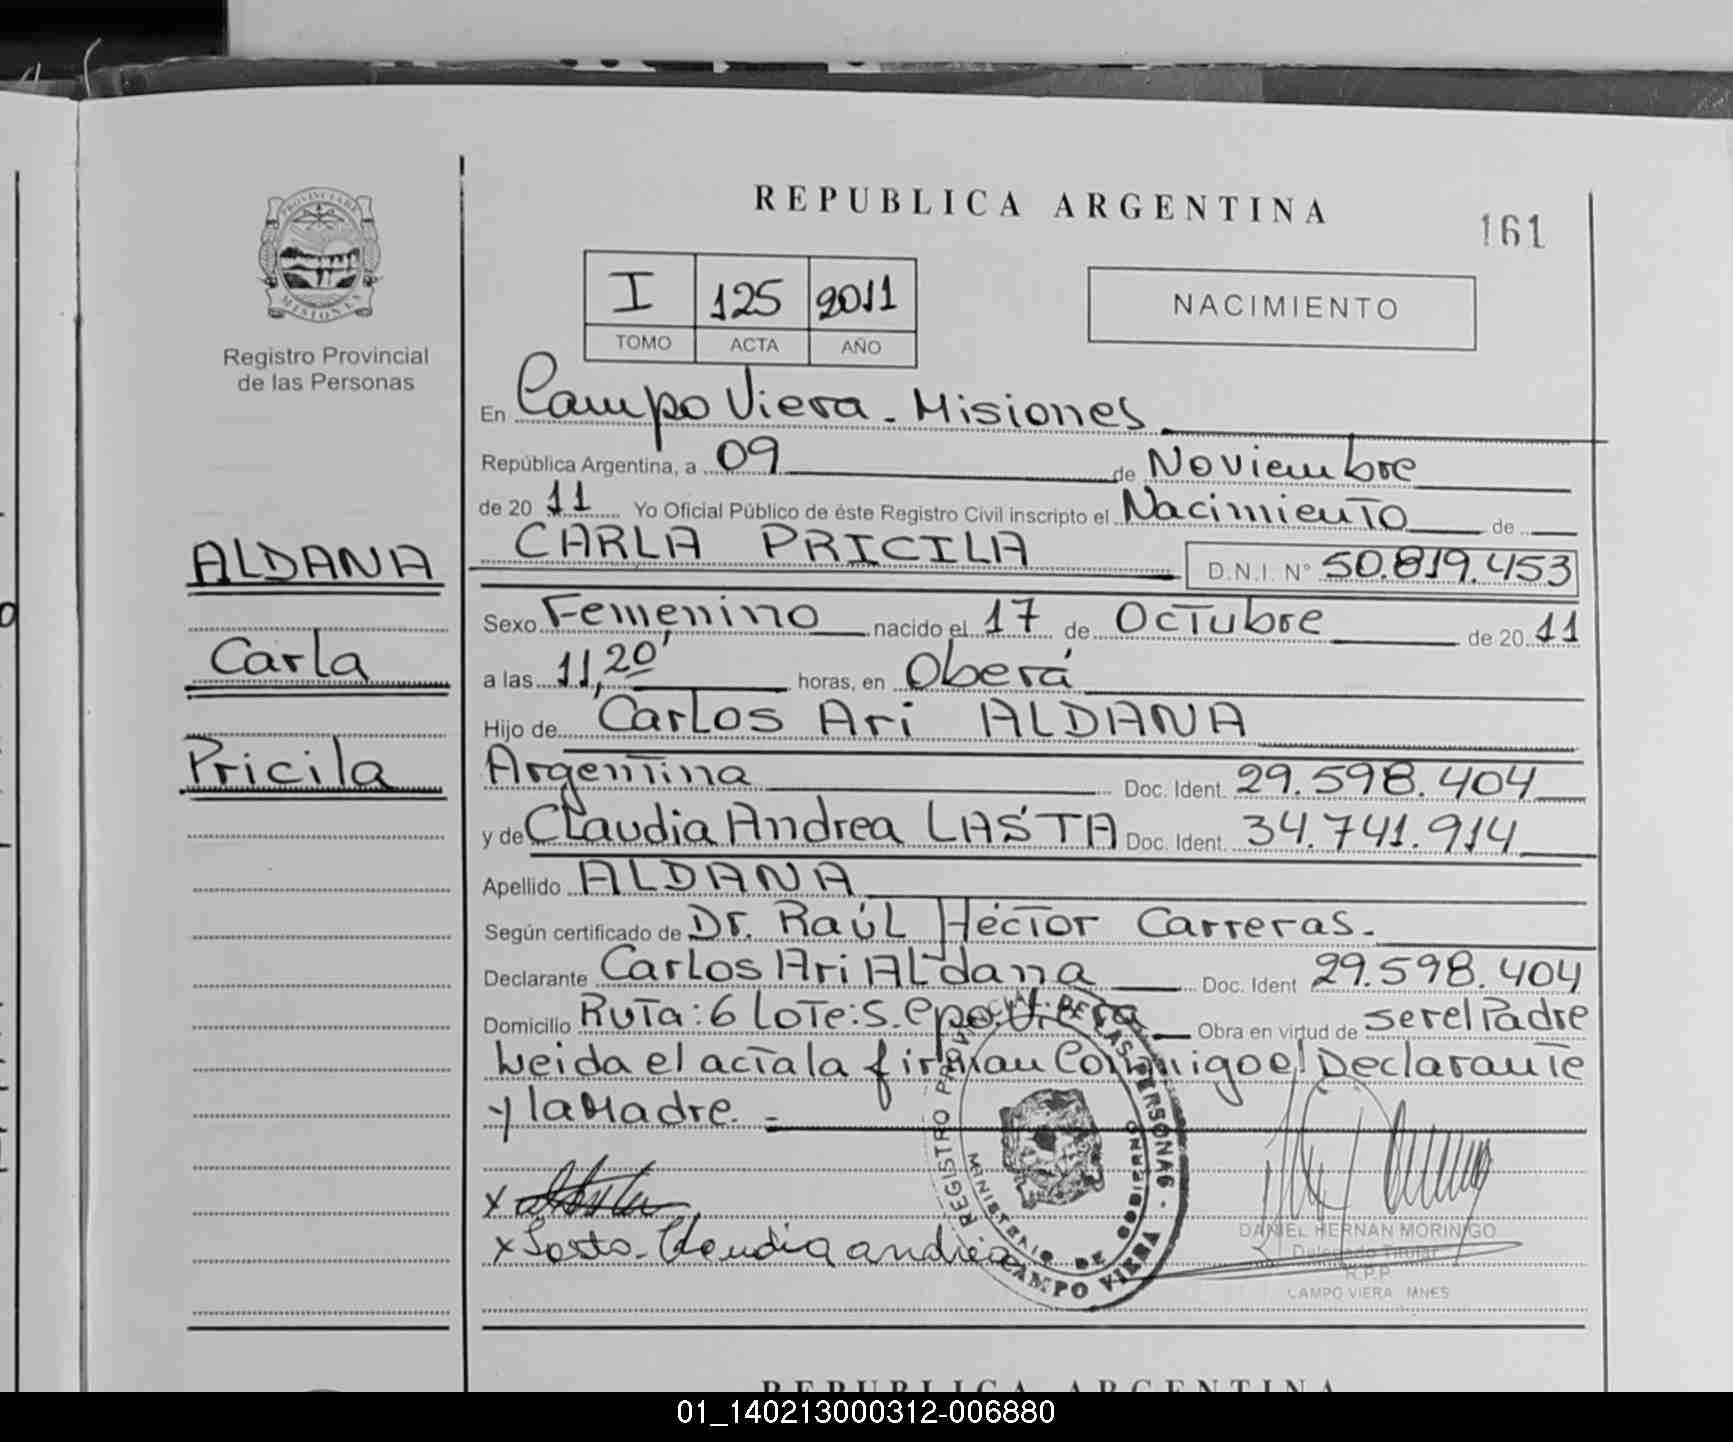 REPUBLICA ARGENTINA
161
PROVINCIA DE
MISIONES
Registro Provincial
de las Personas
I 125 2011
TOMO ACTA AÑO
NACIMIENTO
En Campo Viera - Misiones
República Argentina, a 09 de Noviembre
de 20 11 Yo Oficial Público de éste Registro Civil inscripto el Nacimiento de
CARLA PRICILA D.N.I. N° 50.819.453
ALDANA
Carla
Pricila
Sexo Femenino nacido el 17 de Octubre de 20 11
a las 11,20' horas, en Oberá
Hijo de Carlos Ari ALDANA
Argentina Doc. Ident. 29.598.404
y de Claudia Andrea LASTA Doc. Ident. 34.741.914
Apellido ALDANA
Según certificado de Dr. Raúl Héctor Carreras.
Declarante Carlos Ari Aldana Doc. Ident 29.598.404
Domicilio Ruta: 6 Lote: S. Cpo. Viera Obra en virtud de ser el Padre
Leida el acta la firman Conmigo el Declarante
y la Madre. -
x
x Claudia andrea
REGISTRO PROVINCIAL DE LAS PERSONAS
MINISTERIO DE GOBIERNO
CAMPO VIERA
DANIEL HERNAN MORINIGO
Delegado Titular
R.P.P
CAMPO VIERA MNES
REPUBLICA ARGENTINA
01_140213000312-006880